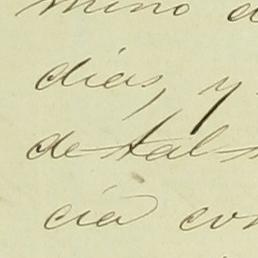 mino d
días, y
de tal s
cia con